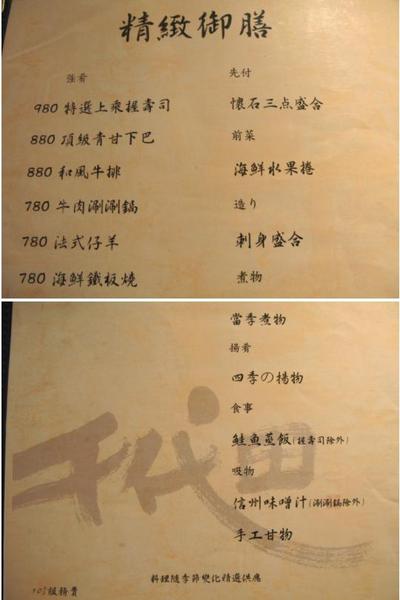 精緻御膳
强肴
980 特選上乘握壽司
880 頂級青甘下巴
880 和風牛排
780 牛肉涮涮鍋
780 法式仔羊
780 海鮮鐵板燒
先付
懷石三点盛合
前菜
海鮮水果捲
造り
刺身盛合
煮物
當季煮物
揚肴
四季の揚物
食事
鮭魚蒸飯(握壽司除外)
吸物
信州味噌汁(涮涮鍋除外)
手工甘物
千代田
料理隨季節變化精選供應
10%服務費